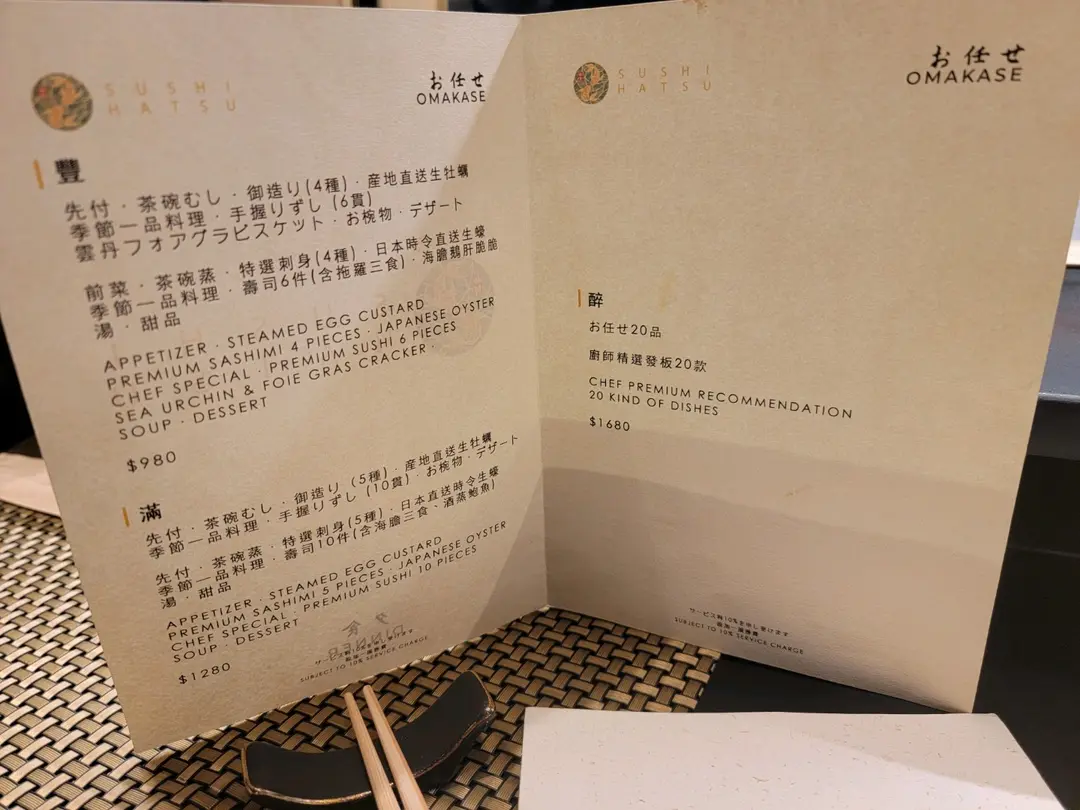 SUSHI
HATSU
お任せ
OMAKASE
豐
先付・茶碗むし・御造り(4種)・産地直送生牡蠣
季節一品料理・手握りずし (6貫)
雲丹フォアグラビスケット・お椀物・デザート
前菜・茶碗蒸・特選刺身(4種)・日本時令直送生蠔
季節一品料理・壽司6件(含拖羅三食)・海膽鵝肝脆脆
湯・甜品
APPETIZER · STEAMED EGG CUSTARD
PREMIUM SASHIMI 4 PIECES · JAPANESE OYSTER
CHEF SPECIAL · PREMIUM SUSHI 6 PIECES
SEA URCHIN & FOIE GRAS CRACKER ·
SOUP · DESSERT
$980
滿
先付・茶碗むし・御造り (5種)・産地直送生牡蠣
季節一品料理・手握りずし (10貫)・お椀物・デザート
先付・茶碗蒸・特選刺身(5種)・日本直送時令生蠔
季節一品料理・壽司10件(含海膽三食、酒蒸鮑魚)
湯・甜品
APPETIZER · STEAMED EGG CUSTARD
PREMIUM SASHIMI 5 PIECES · JAPANESE OYSTER
CHEF SPECIAL · PREMIUM SUSHI 10 PIECES
SOUP · DESSERT
$1280
サービス料10%を申し受けます
另加一服務費
SUBJECT TO 10% SERVICE CHARGE
SUSHI
HATSU
お任せ
OMAKASE
醉
お任せ20品
廚師精選發板20款
CHEF PREMIUM RECOMMENDATION
20 KIND OF DISHES
$1680
サービス料10%を申し受けます
另加一服務費
SUBJECT TO 10% SERVICE CHARGE